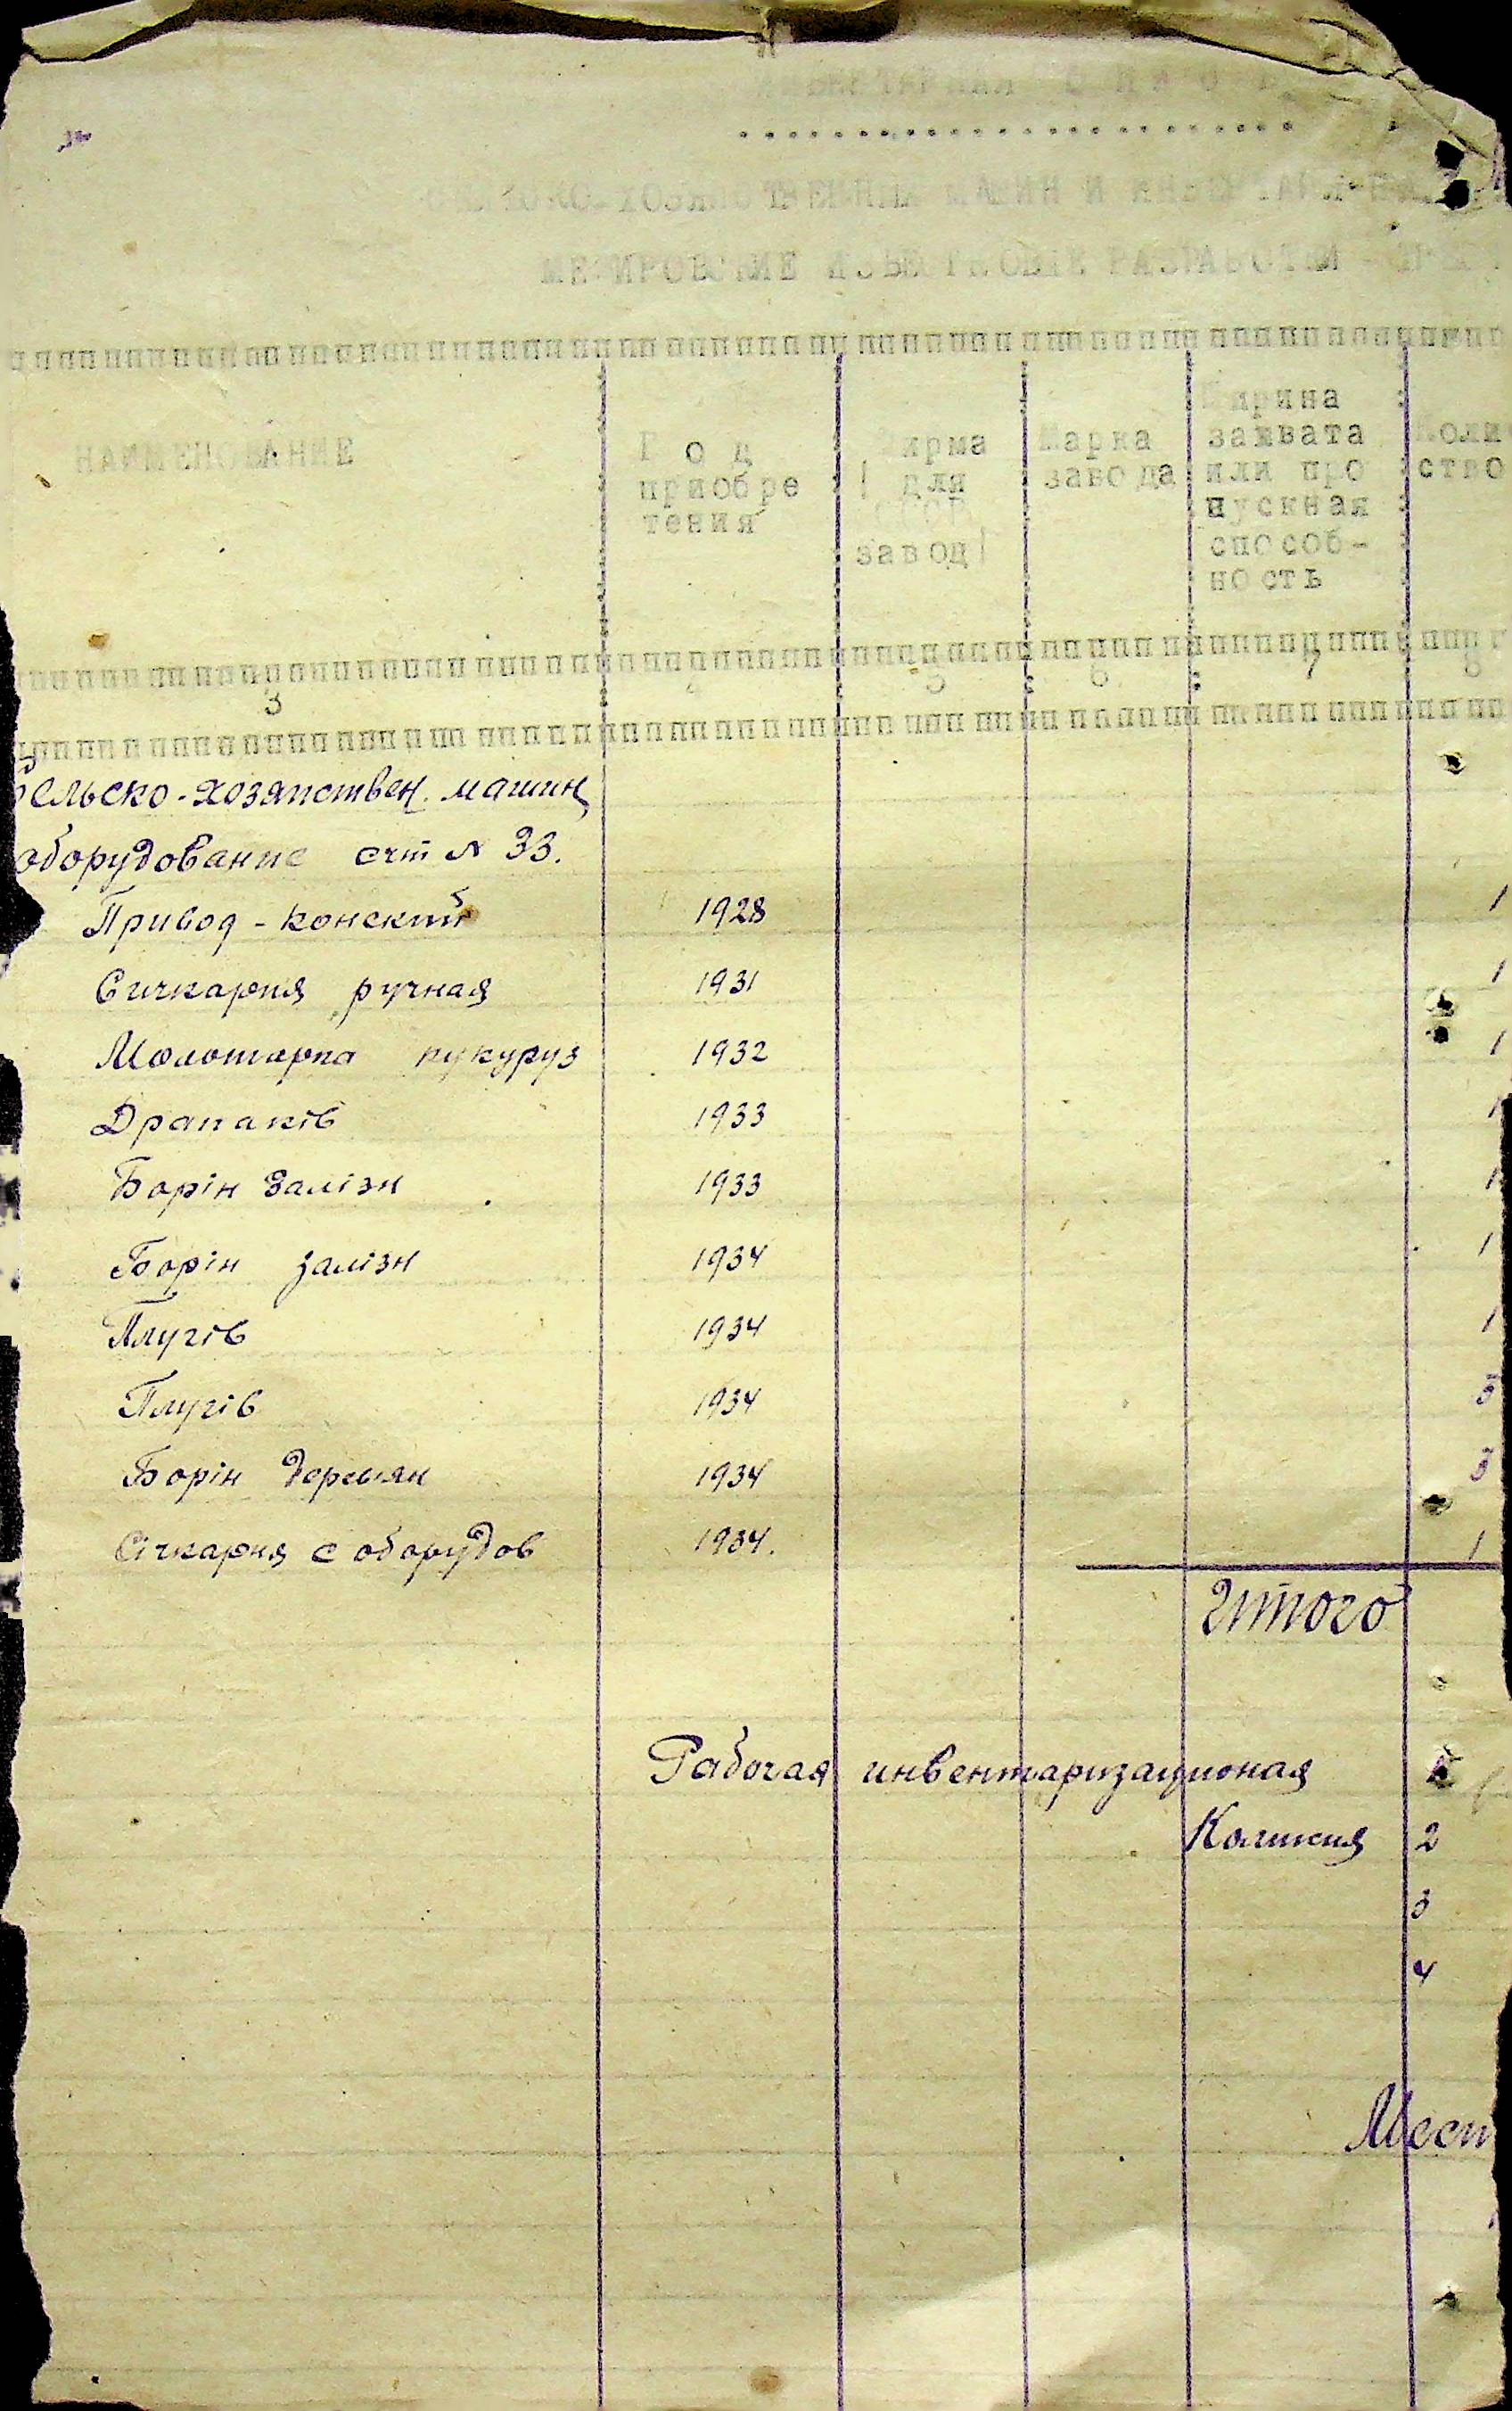 МЕЖИРОВСКИЕ ИЗВЕСТКОВЫЕ РАЗРАБОТКИ
НАИМЕНОВАНИЕ
Год
приобре
тения
Фирма
( для
завод)
Марка
завода
Ширина
захвата
или про
пускная
способ-
ность
Коли
ство
3 5 6 7 8
Сельско-хозяйствен. машин
оборудование счт № 33.
Привод - конский 1928 1
Сичкарня ручная 1931 1
Молотарка кукуруз 1932 1
Драпаків 1933 1
Борін Залізн 1933 1
Борін залізн 1934 1
Плугів 1934 1
Плугів 1934 3
Борін деревян 1934 3
Січкарня с оборудов 1934. 1
Итого
Рабочая инвентаризационая
2
3
4
Мест